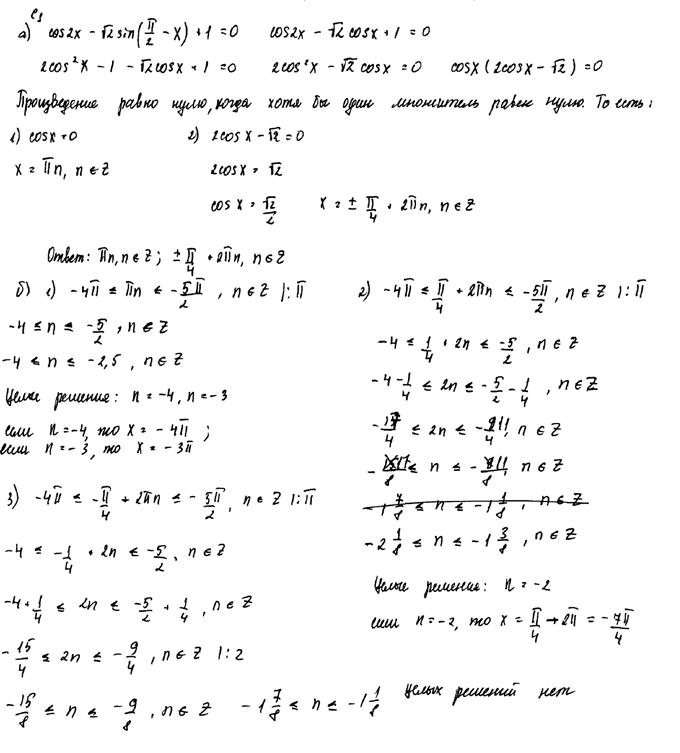 c1
а) cos2x - √2 sin(π/2 - x) + 1 = 0   cos2x - √2 cosx + 1 = 0
2cos²x - 1 - √2cosx + 1 = 0   2cos²x - √2 cosx = 0   cosx(2cosx - √2) = 0
Произведение равно нулю, когда хотя бы один множитель равен нулю. То есть:
1) cosx = 0   2) 2cosx - √2 = 0
x = πn, n ∈ Z   2cosx = √2
cosx = √2/2   x = ± π/4 + 2πn, n ∈ Z
Ответ: πn, n ∈ Z; ± π/4 + 2πn, n ∈ Z
б) 1) -4π ≤ πn ≤ -5π/2, n ∈ Z |:π
-4 ≤ n ≤ -5/2, n ∈ Z
-4 ≤ n ≤ -2,5, n ∈ Z
Целые решения: n = -4, n = -3
если n = -4, то x = -4π;
если n = -3, то x = -3π
2) -4π ≤ π/4 + 2πn ≤ -5π/2, n ∈ Z |:π
-4 ≤ 1/4 + 2n ≤ -5/2, n ∈ Z
-4 - 1/4 ≤ 2n ≤ -5/2 - 1/4, n ∈ Z
-17/4 ≤ 2n ≤ -11/4, n ∈ Z
-17/8 ≤ n ≤ -11/8, n ∈ Z
-1 7/8 ≤ n ≤ -1 1/8, n ∈ Z
-2 1/8 ≤ n ≤ -1 3/8, n ∈ Z
Целые решения: n = -2
если n = -2, то x = π/4 - 2π = -7π/4
3) -4π ≤ -π/4 + 2πn ≤ -5π/2, n ∈ Z |:π
-4 ≤ -1/4 + 2n ≤ -5/2, n ∈ Z
-4 + 1/4 ≤ 2n ≤ -5/2 + 1/4, n ∈ Z
-15/4 ≤ 2n ≤ -9/4, n ∈ Z |:2
-15/8 ≤ n ≤ -9/8, n ∈ Z   -1 7/8 ≤ n ≤ -1 1/8   Целых решений нет